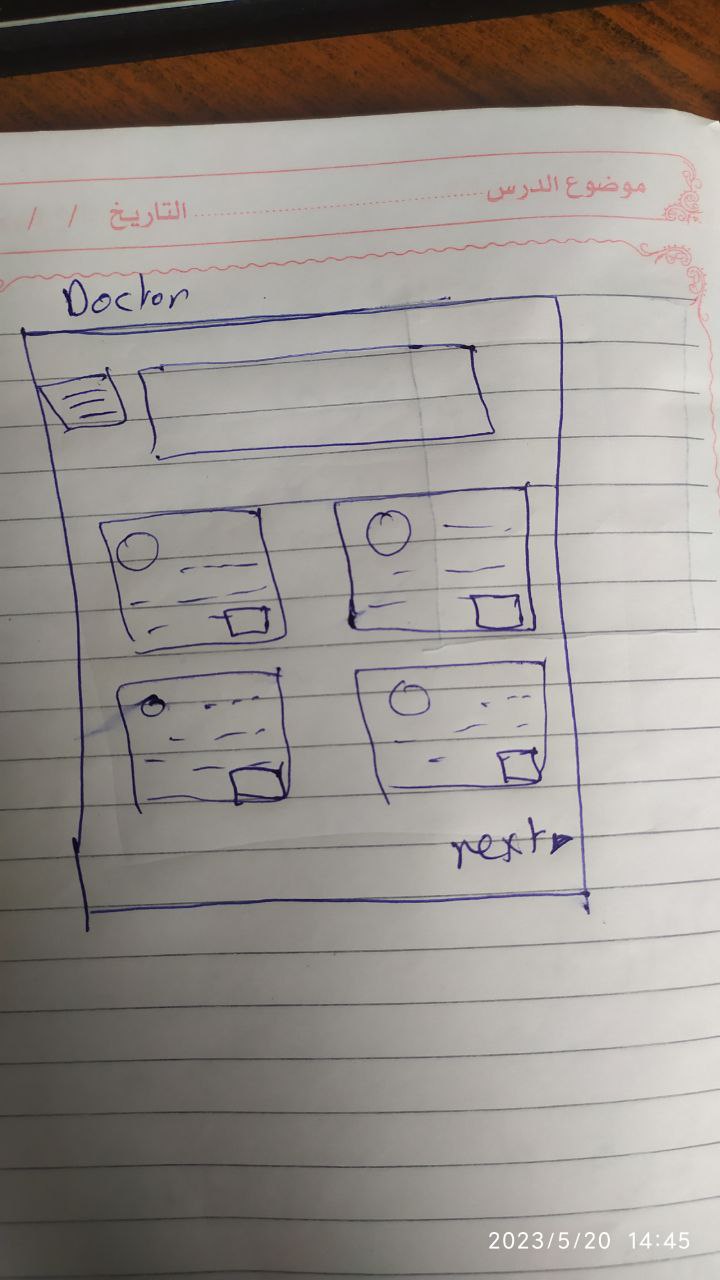 موضوع الدرس ........................ التاريخ / /
Doctor
next
2023/5/20 14:45